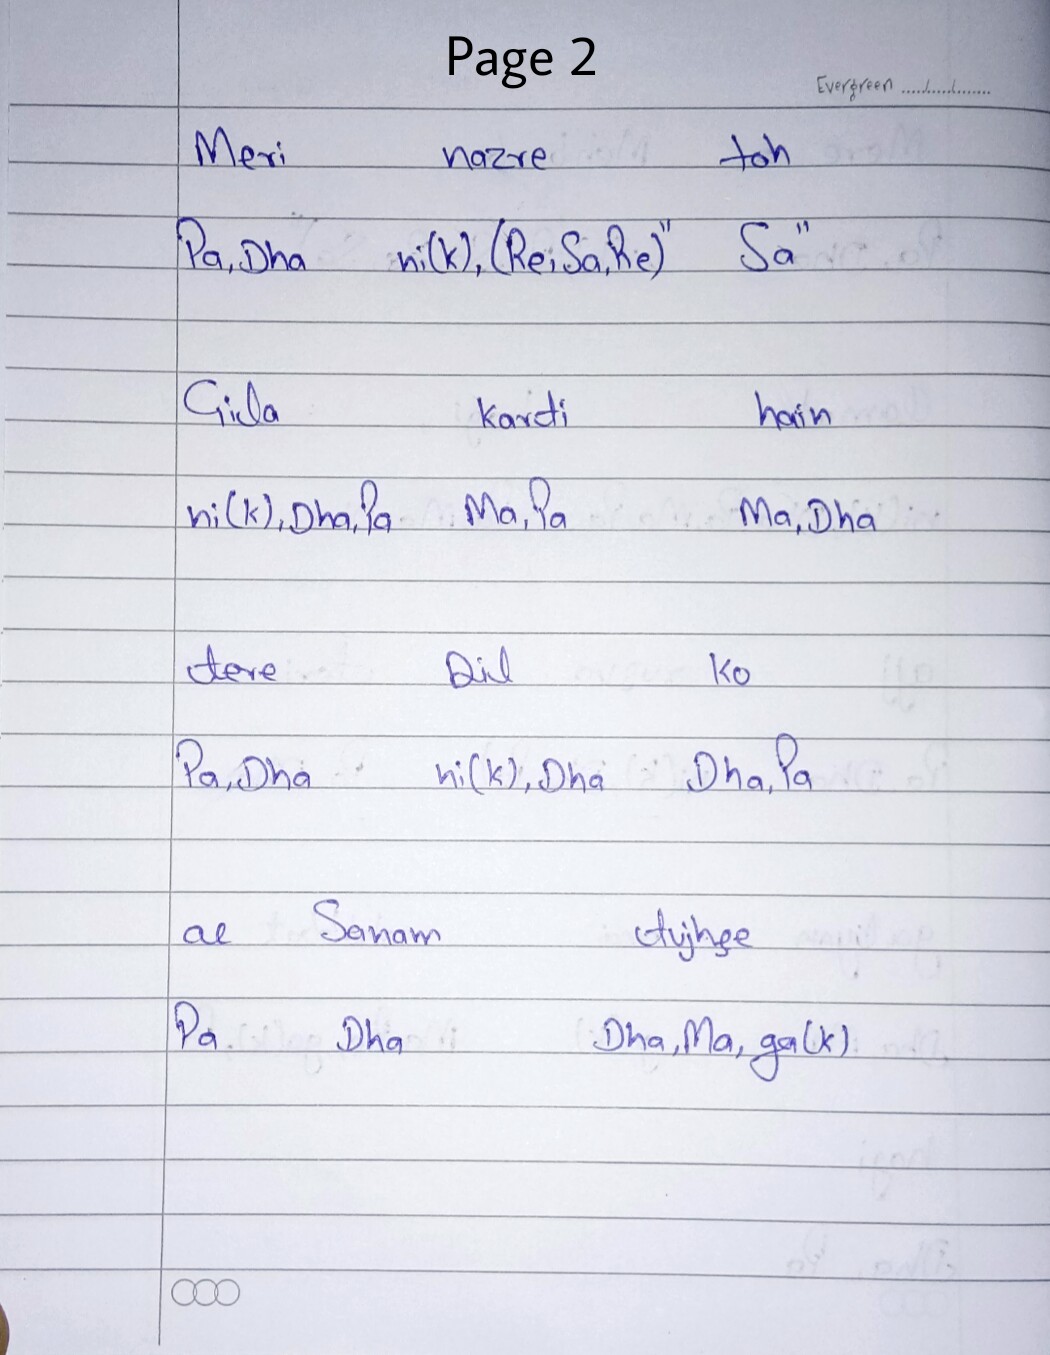 Page 2
Evergreen ....../....../........
Meri nazre toh
Pa, Dha ni(k), (Re, Sa, Re)" Sa"
Gila kardi hain
ni(k), Dha, Pa Ma, Pa Ma, Dha
tere Dil ko
Pa, Dha ni(k), Dha Dha, Pa
ae Sanam tujhse
Pa Dha Dha, Ma, ga(k)